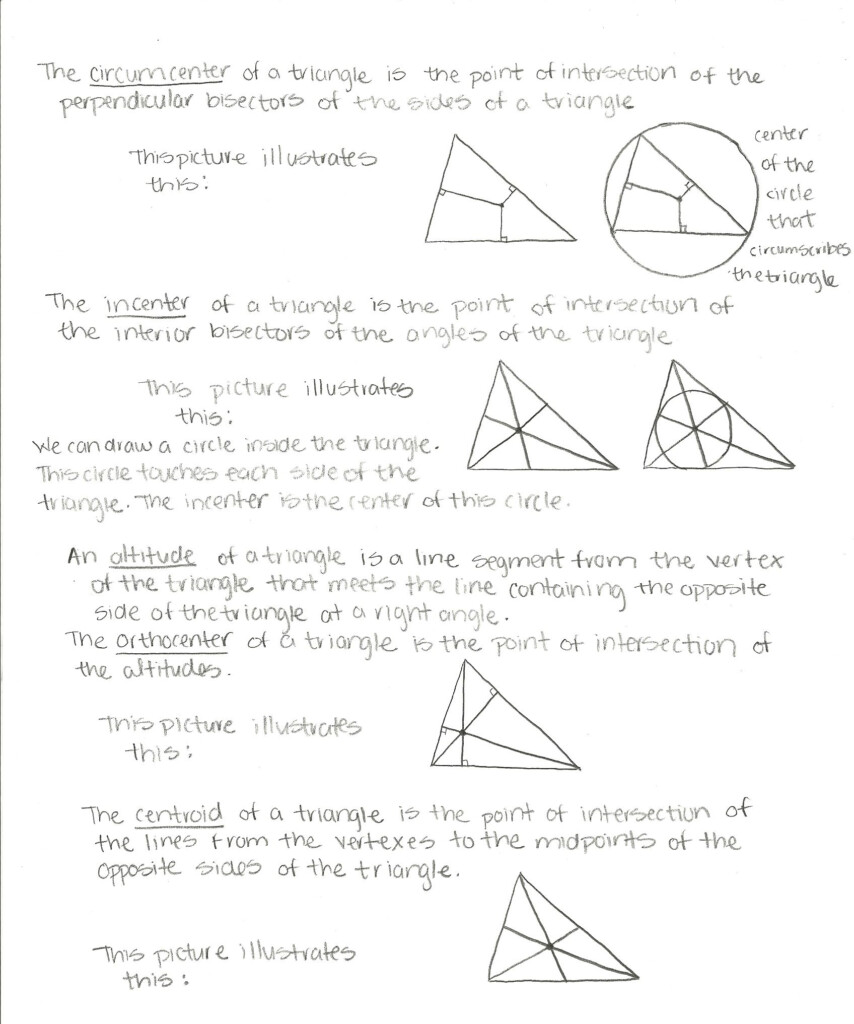 The circumcenter of a triangle is the point of intersection of the
perpendicular bisectors of the sides of a triangle
This picture illustrates
this:
center
of the
circle
that
circumscribes
the triangle
The incenter of a triangle is the point of intersection of
the interior bisectors of the angles of the triangle
This picture illustrates
this:
We can draw a circle inside the triangle.
This circle touches each side of the
triangle. The incenter is the center of this circle.
An altitude of a triangle is a line segment from the vertex
of the triangle that meets the line containing the opposite
side of the triangle at a right angle.
The orthocenter of a triangle is the point of intersection of
the altitudes.
This picture illustrates
this:
The centroid of a triangle is the point of intersection of
the lines from the vertexes to the midpoints of the
opposite sides of the triangle.
This picture illustrates
this: